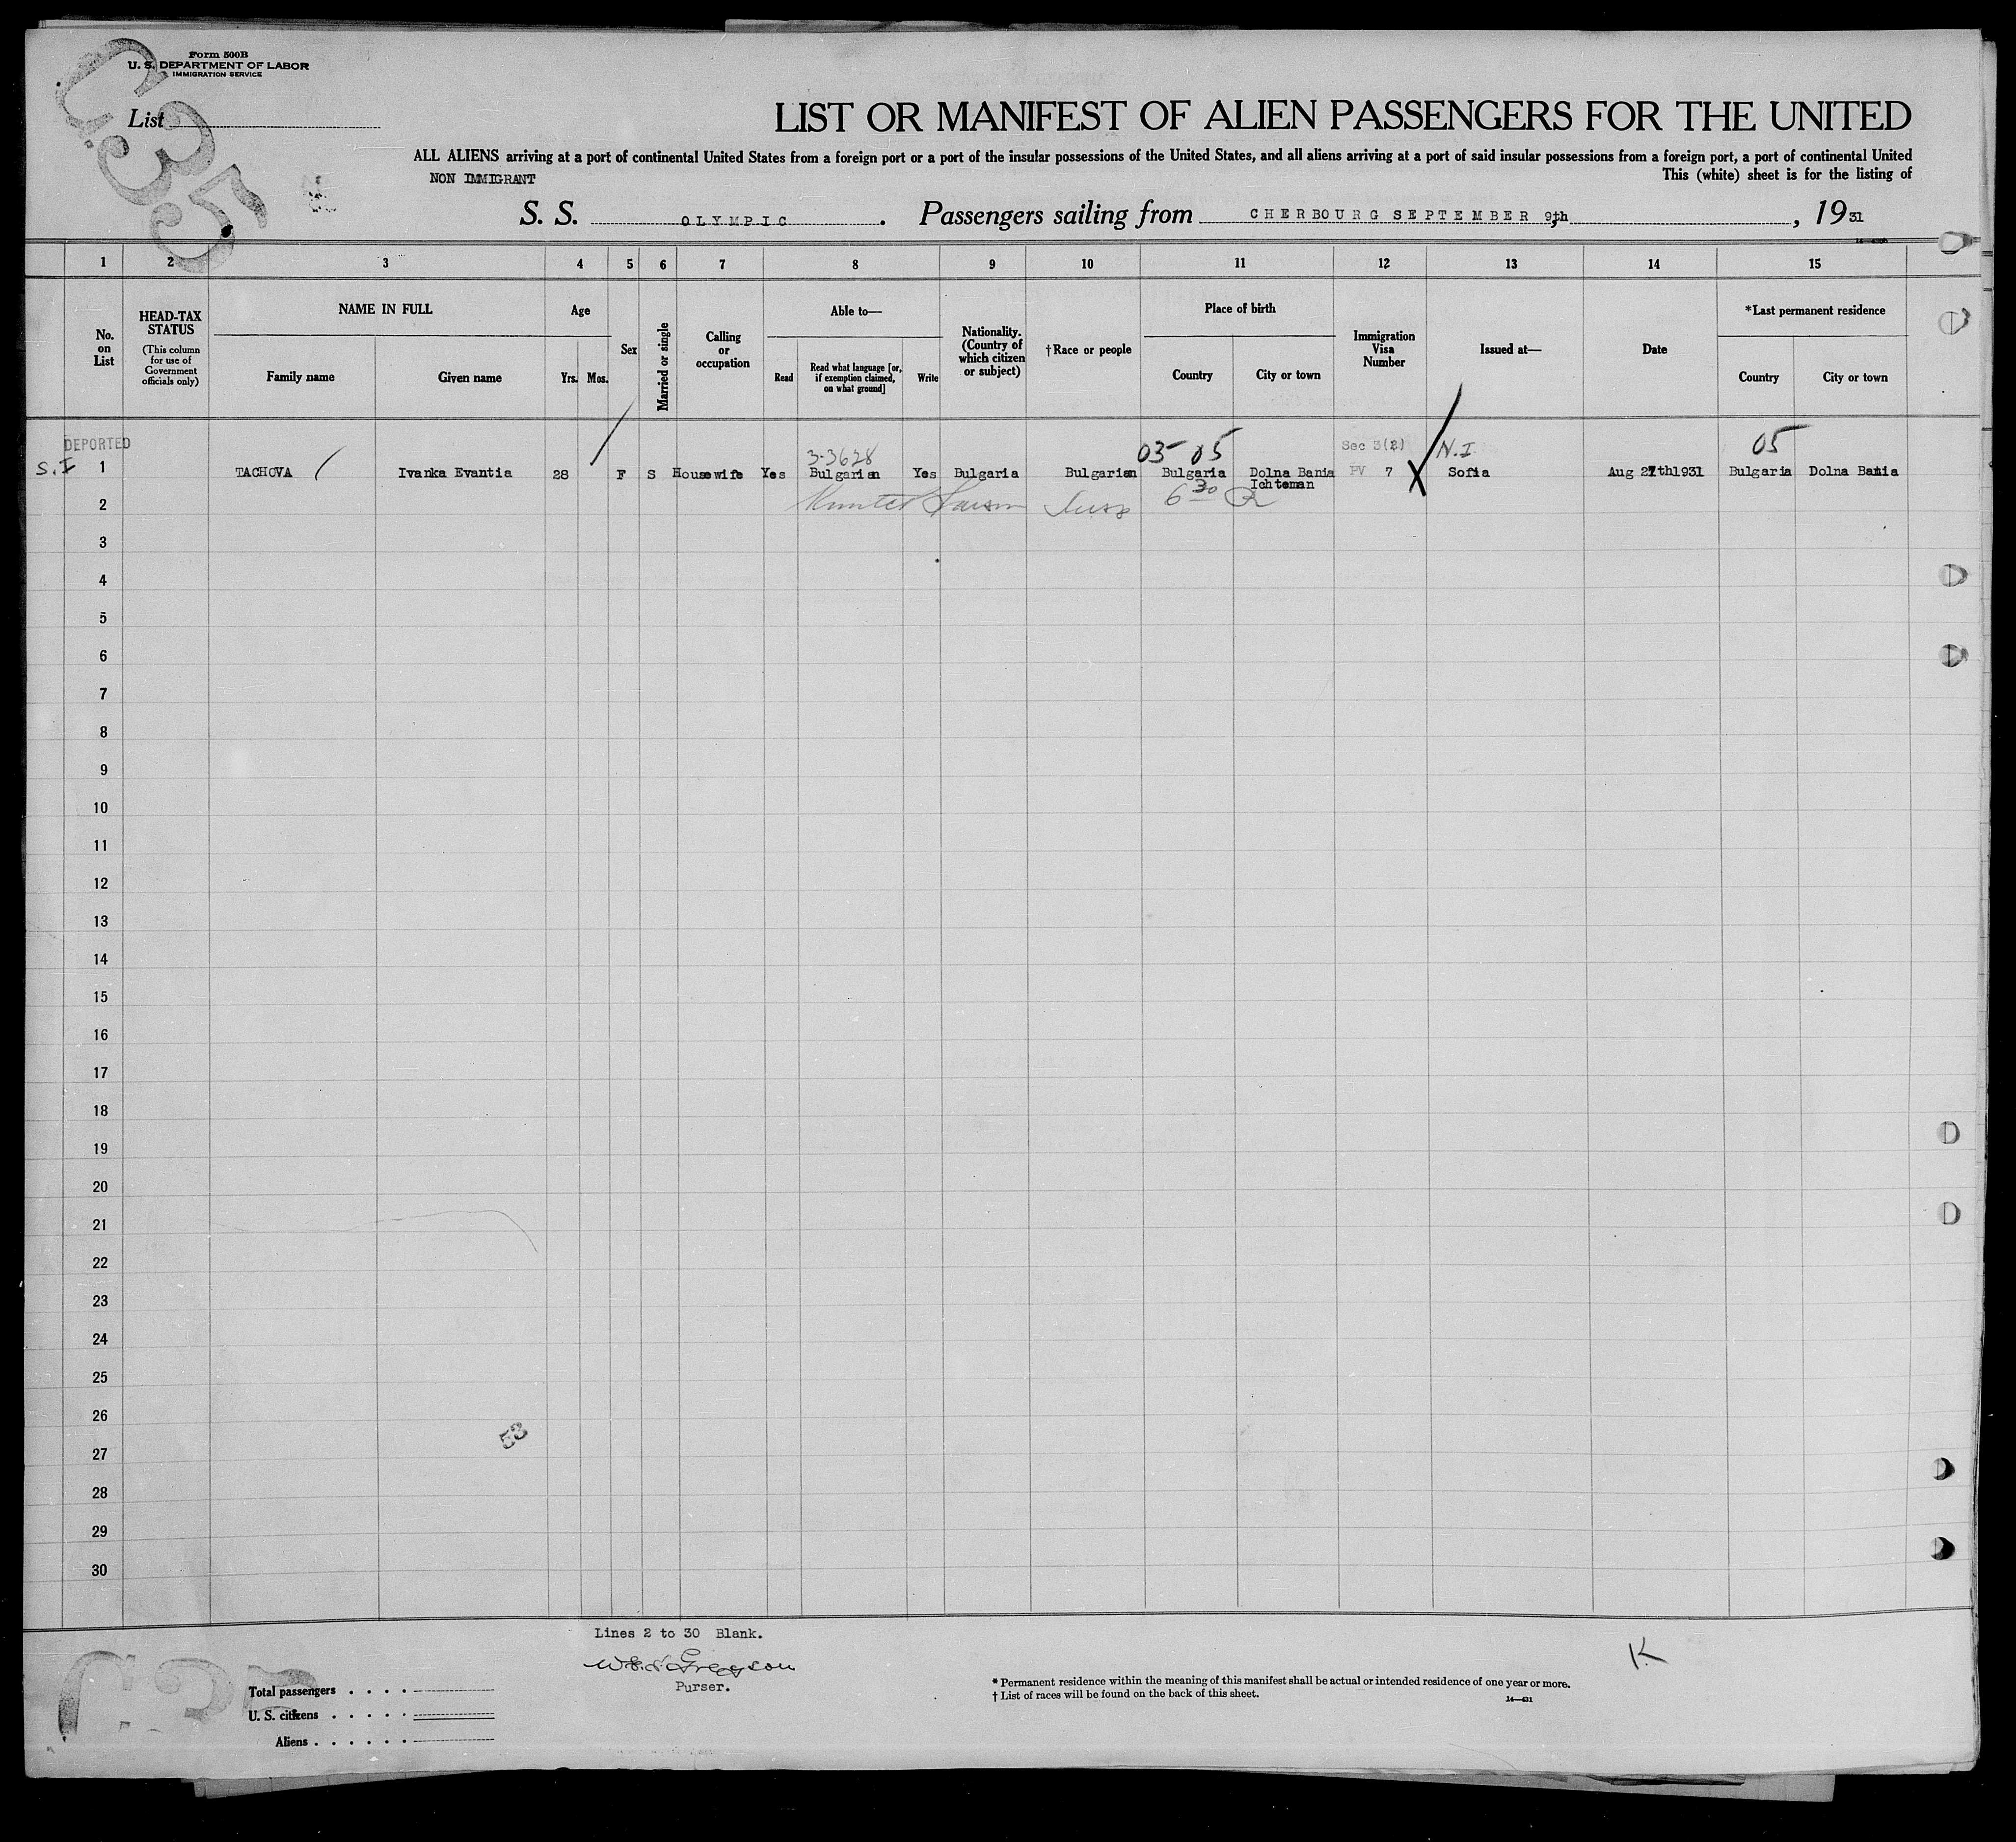 Form 500B
U. S. DEPARTMENT OF LABOR
IMMIGRATION SERVICE
List
LIST OR MANIFEST OF ALIEN PASSENGERS FOR THE UNITED
ALL ALIENS arriving at a port of continental United States from a foreign port or a port of the insular possessions of the United States, and all aliens arriving at a port of said insular possessions from a foreign port, a port of continental United
NON IMMIGRANT
This (white) sheet is for the listing of
S. S. OLYMPIC. Passengers sailing from CHERBOURG SEPTEMBER 9th, 1931
1 2 3 4 5 6 7 8 9 10 11 12 13 14 15
No. on List
HEAD-TAX STATUS
(This column for use of Government officials only)
NAME IN FULL
Family name Given name
Age
Yrs. Mos.
Sex
Married or single
Calling or occupation
Able to—
Read
Read what language [or, if exemption claimed, on what ground]
Write
Nationality. (Country of which citizen or subject)
†Race or people
Place of birth
Country City or town
Immigration Visa Number
Issued at—
Date
*Last permanent residence
Country City or town
DEPORTED
3-3628 03-05 Sec 3(2) N.I. 05
S.I 1 TACHOVA Ivanka Evantia 28 F S Housewife Yes Bulgarian Yes Bulgaria Bulgarian Bulgaria Dolna Bania PV 7 X Sofia Aug 27th1931 Bulgaria Dolna Bania
Ichteman
2 6 30
3
4
5
6
7
8
9
10
11
12
13
14
15
16
17
18
19
20
21
22
23
24
25
26
53
27
28
29
30
Lines 2 to 30 Blank.
Gregson
Purser.
K
Total passengers . . . .
U. S. citizens . . . . .
Aliens . . . . . .
* Permanent residence within the meaning of this manifest shall be actual or intended residence of one year or more.
† List of races will be found on the back of this sheet.
14—431